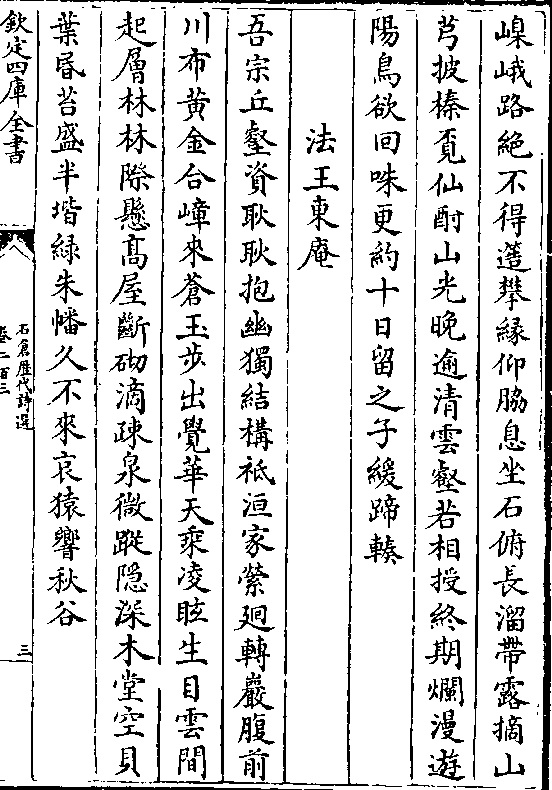 嵲峩路絶不得蘧攀緣仰脇息坐石俯長溜帶露摘山
芎披榛覓仙酎山光晚逾清雲壑若相授終期爛漫遊
陽鳥欲回咮更約十日留之子緩蹄輳
法王東庵
吾宗丘壑資耿耿抱幽獨結構祇洹家縈廻轉巖腹前
川布黃金合嶂來蒼玉步出覺華天乘凌眩生目雲間
起層林林際懸高屋斷砌滴疎泉微蹤隱深木堂空貝
葉昬苔盛半堦緑朱幡久不來哀猿響秋谷
欽定四庫全書
石倉歷代詩選
卷二百三
三